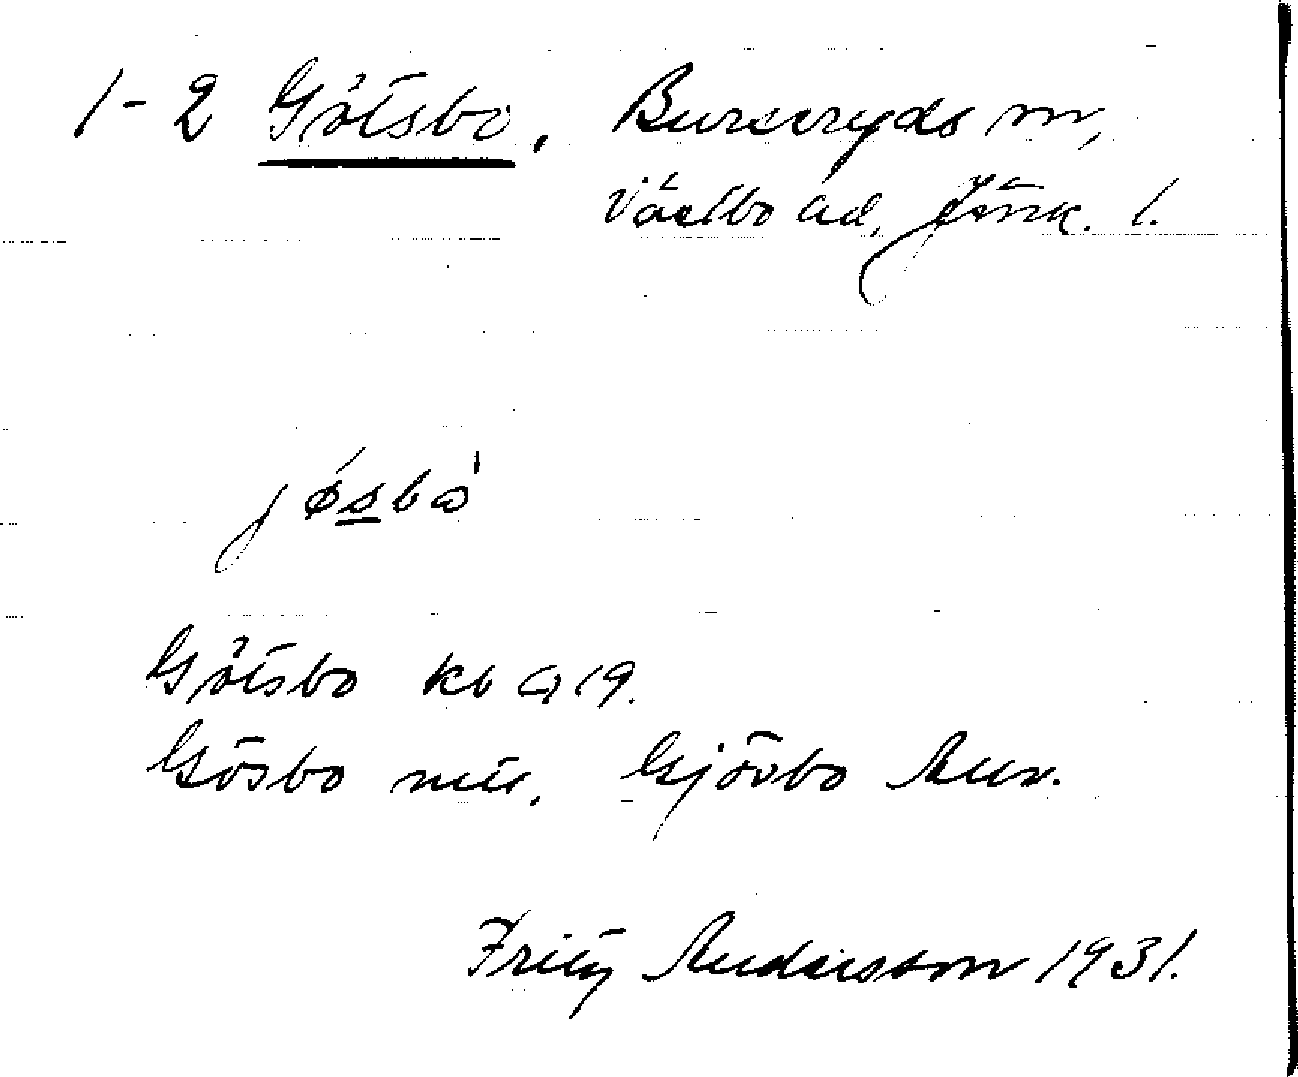 1-2 Götsbo, Burseryds sn,
Västbo hd, Jönk. l.
jǿsbò
Götsbo kb A 19.
Gösbo mtl. Gjösbo Anv.
Fritz Andersson 1931.